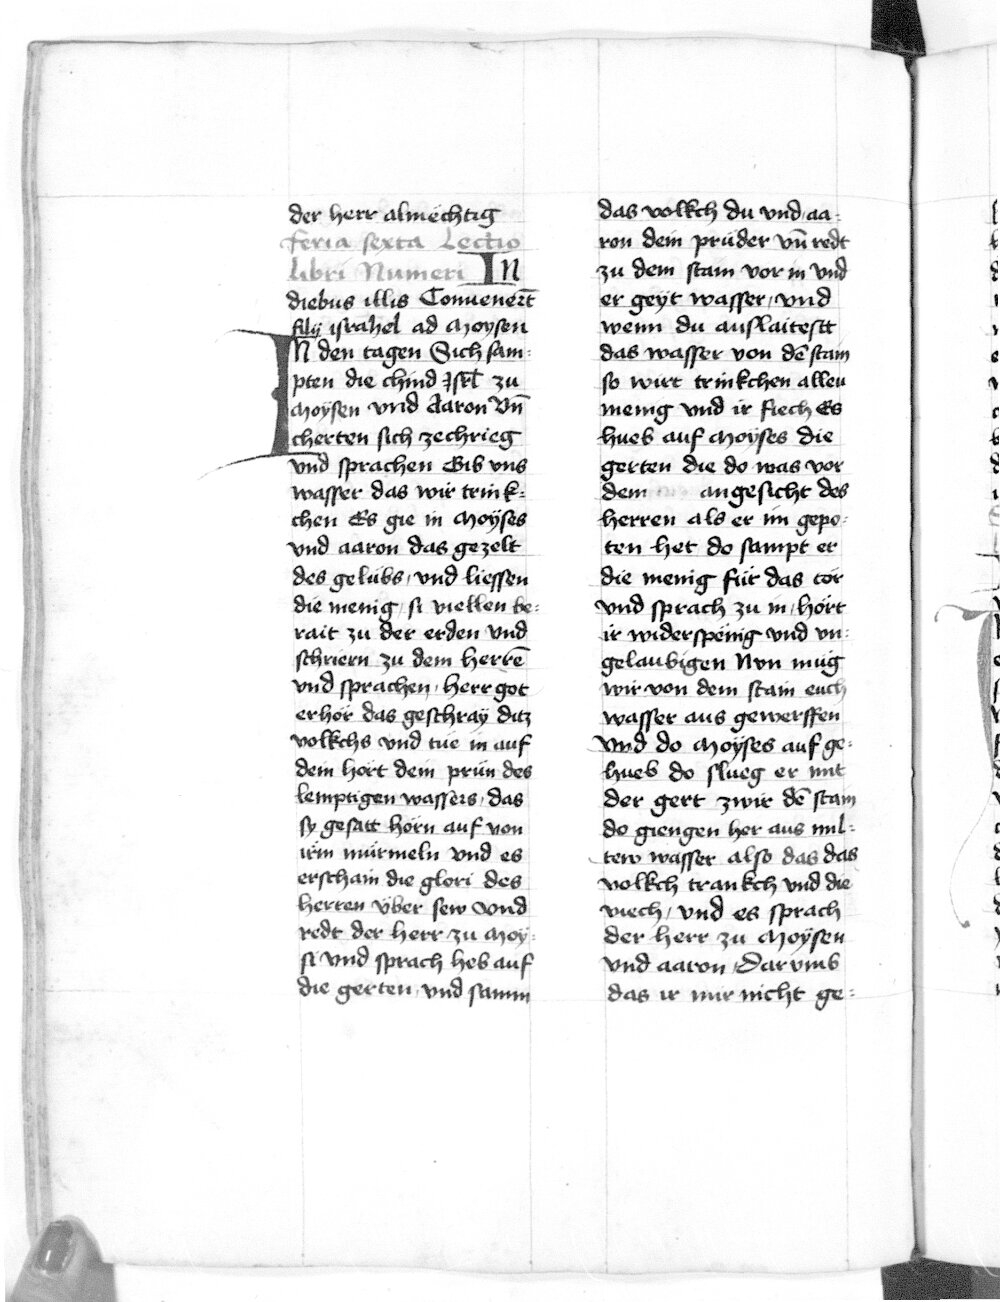 der herr almëchtig
feria sexta Lectio
libri Numeri IN
diebus illis Conuener̄t
filij israhel ad Moysen
IN den tagen Sich sam:
pten die chind Jsrl̄ zu
Moÿsen vnd Aaron Vn̄
cherten sich zechrieg
vnd sprachen Gib vns
wasser das wir trink:
chen Es gie in Moÿses
vnd aaron das gezelt
des gelübs, vnd liessen
die menig, si viellen be:
rait zu der erden vnd
schriern zu dem herrē
vnd sprachen, herr got
erhör das geschraÿ ditz
volkchs vnd tue in auf
dein hort dein prün des
lemptigen wassers, das
sy gesatt hörn auf von
irm mürmeln vnd es
erschain die glori des
herren vber sew vnd
redt der herr zu Moÿ:
si vnd sprach heb auf
die gerten, vnd samm
das volkch du vnd aa:
ron dein prüder vn̄ redt
zu dem stain vor in vnd
er geÿt wasser, vnd
wenn du auslaitestt
das wasser von dē stain
so wirt trinkchen alleu
menig vnd ir fiech Es
hueb auf Moÿses die
gerten die do was vor
dem angesicht des
herren als er im gepo:
ten het do sampt er
die menig für das tör
vnd sprach zu in, hört
ir widerspënig vnd vn:
gelaubigen Nvn müg
wir von dem stain euch
wasser aus gewerffen
Vnd do Moÿses auf ge:
hueb do slueg er mit
der gert zwir dē stain
do giengen her aus mil:
tew wasser also das das
volkch trankch vnd die
viech, vnd es sprach
der herr zu Moÿsen
vnd aaron, Darvmb
das ir mir nicht ge: